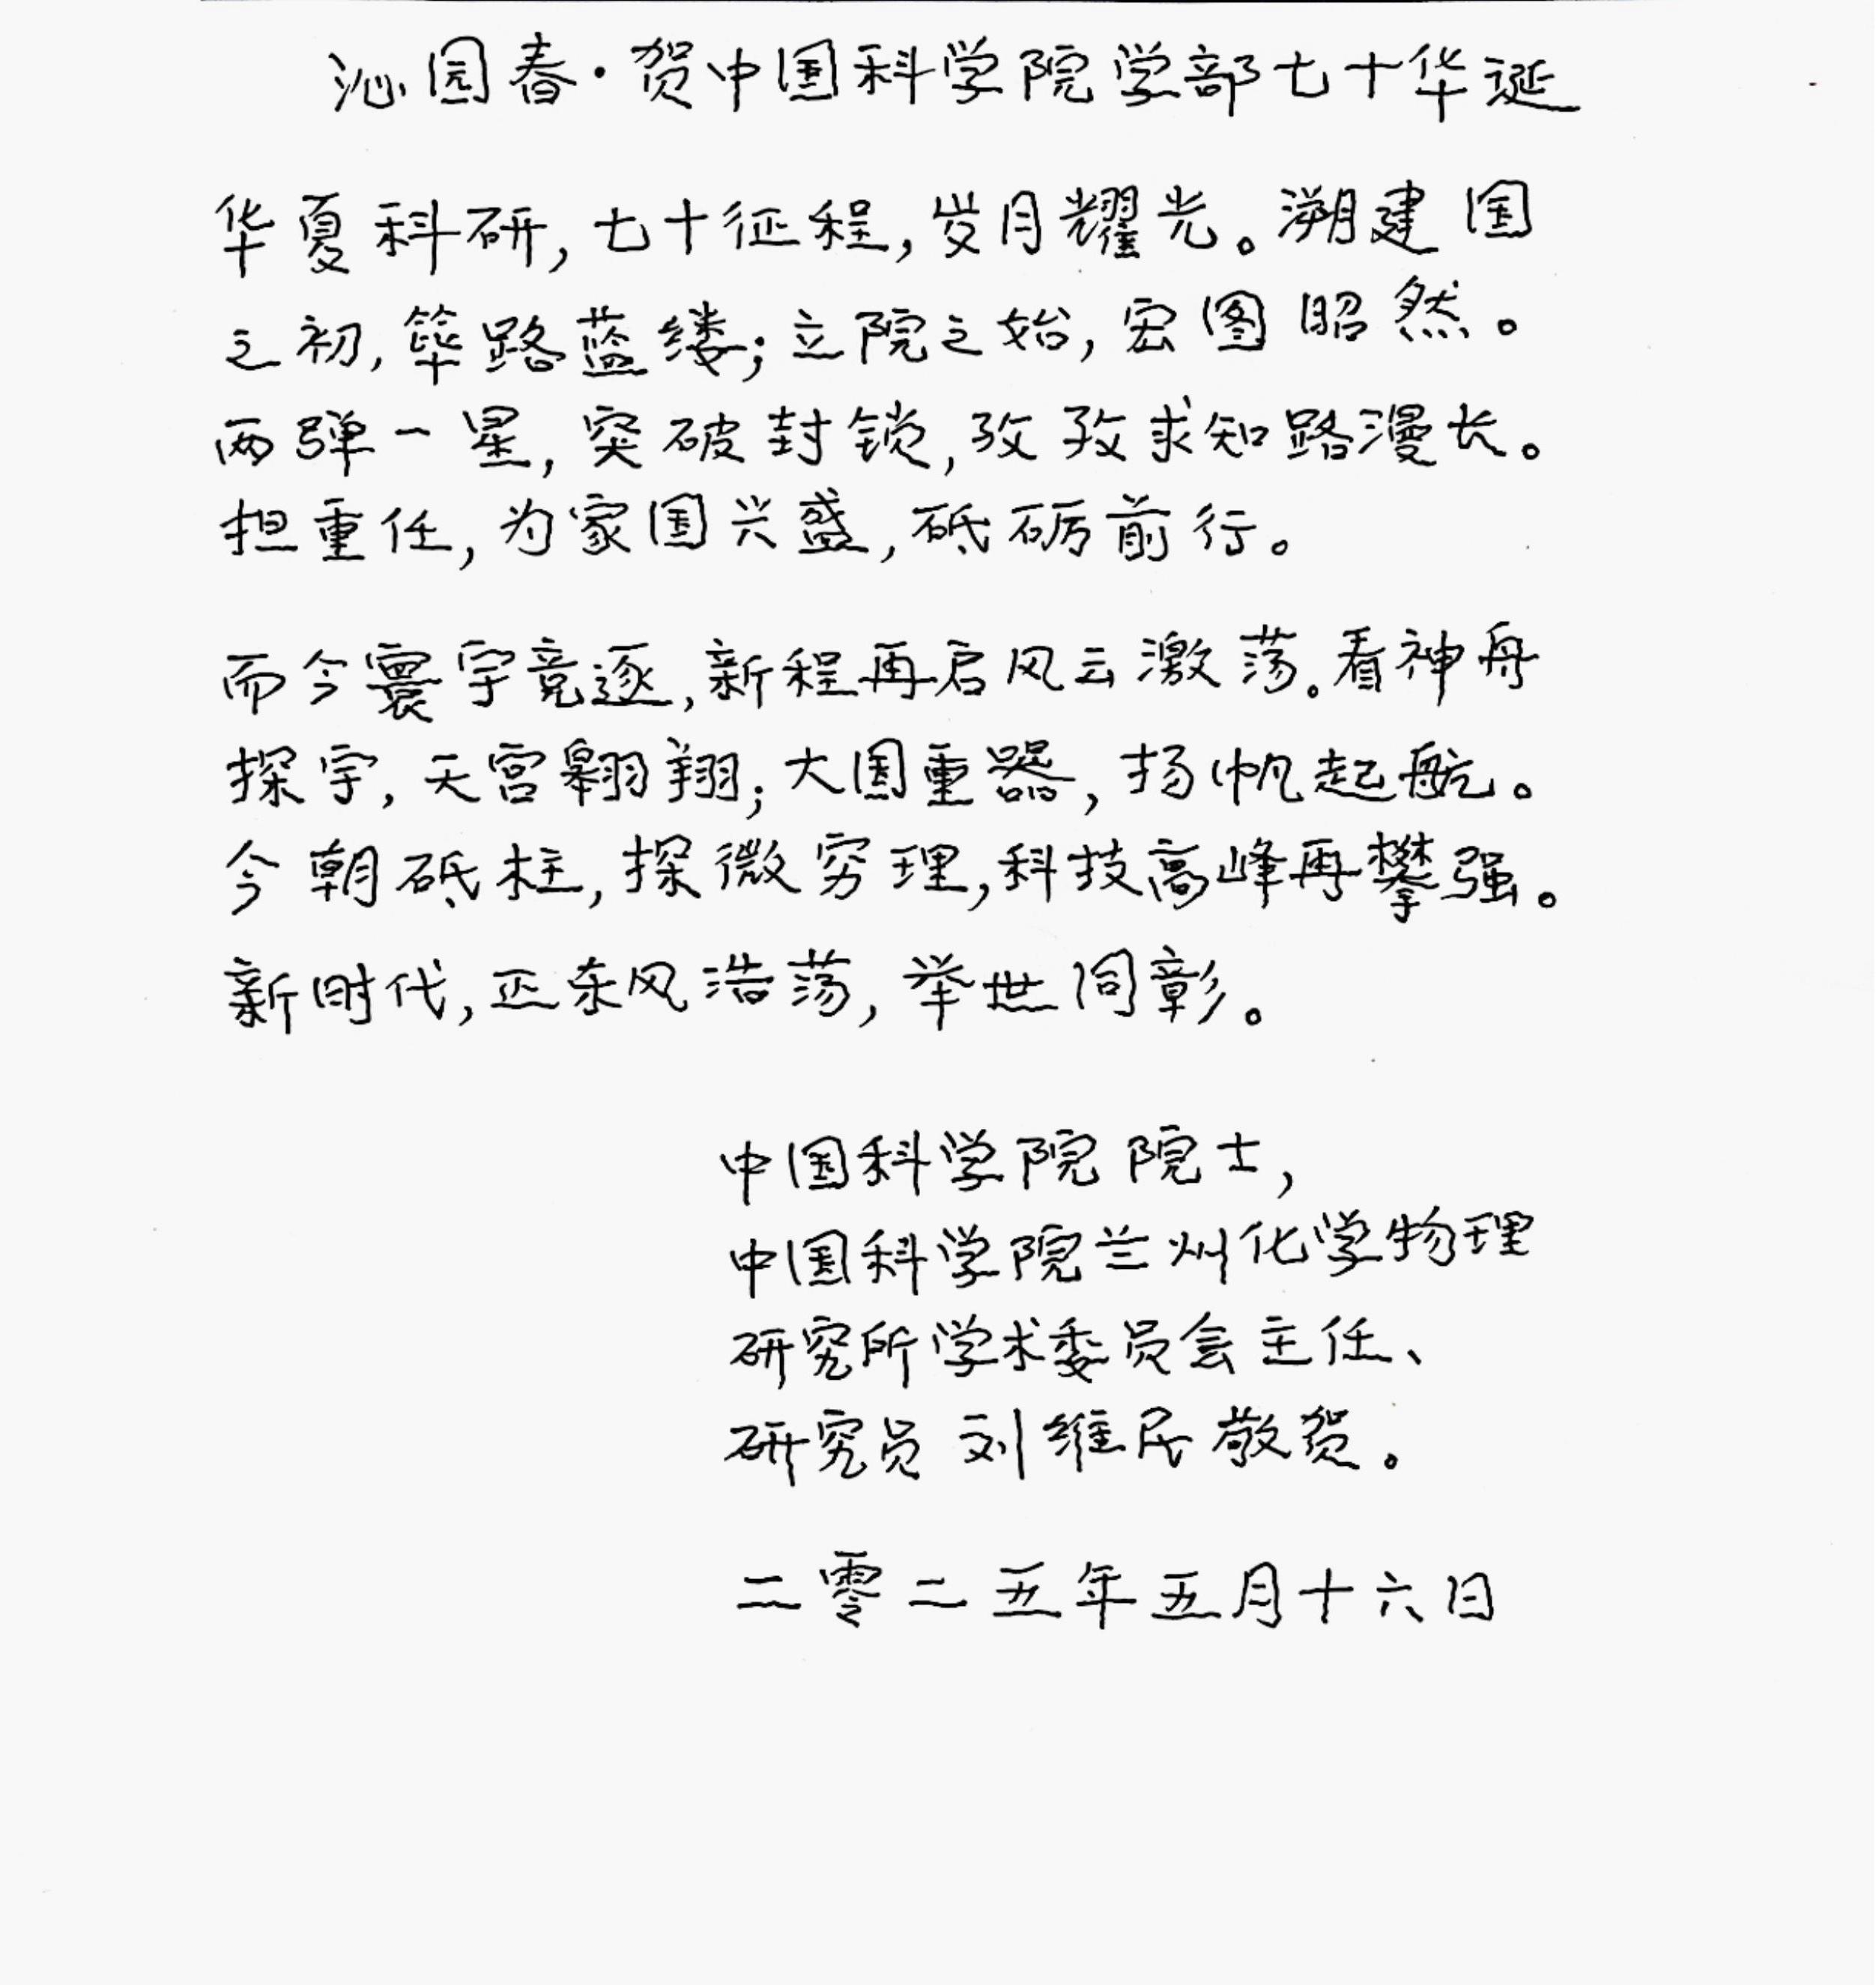 沁园春·贺中国科学院学部七十华诞
华夏科研,七十征程,岁月耀光。溯建国
之初,筚路蓝缕;立院之始,宏图昭然。
两弹一星,突破封锁,孜孜求知路漫长。
担重任,为家国兴盛,砥砺前行。
而今寰宇竞逐,新程再启风云激荡。看神舟
探宇,天宫翱翔;大国重器,扬帆起航。
今朝砥柱,探微穷理,科技高峰再攀强。
新时代,正东风浩荡,举世同彰。
中国科学院院士,
中国科学院兰州化学物理
研究所学术委员会主任、
研究员 刘维民敬贺。
二零二五年五月十六日